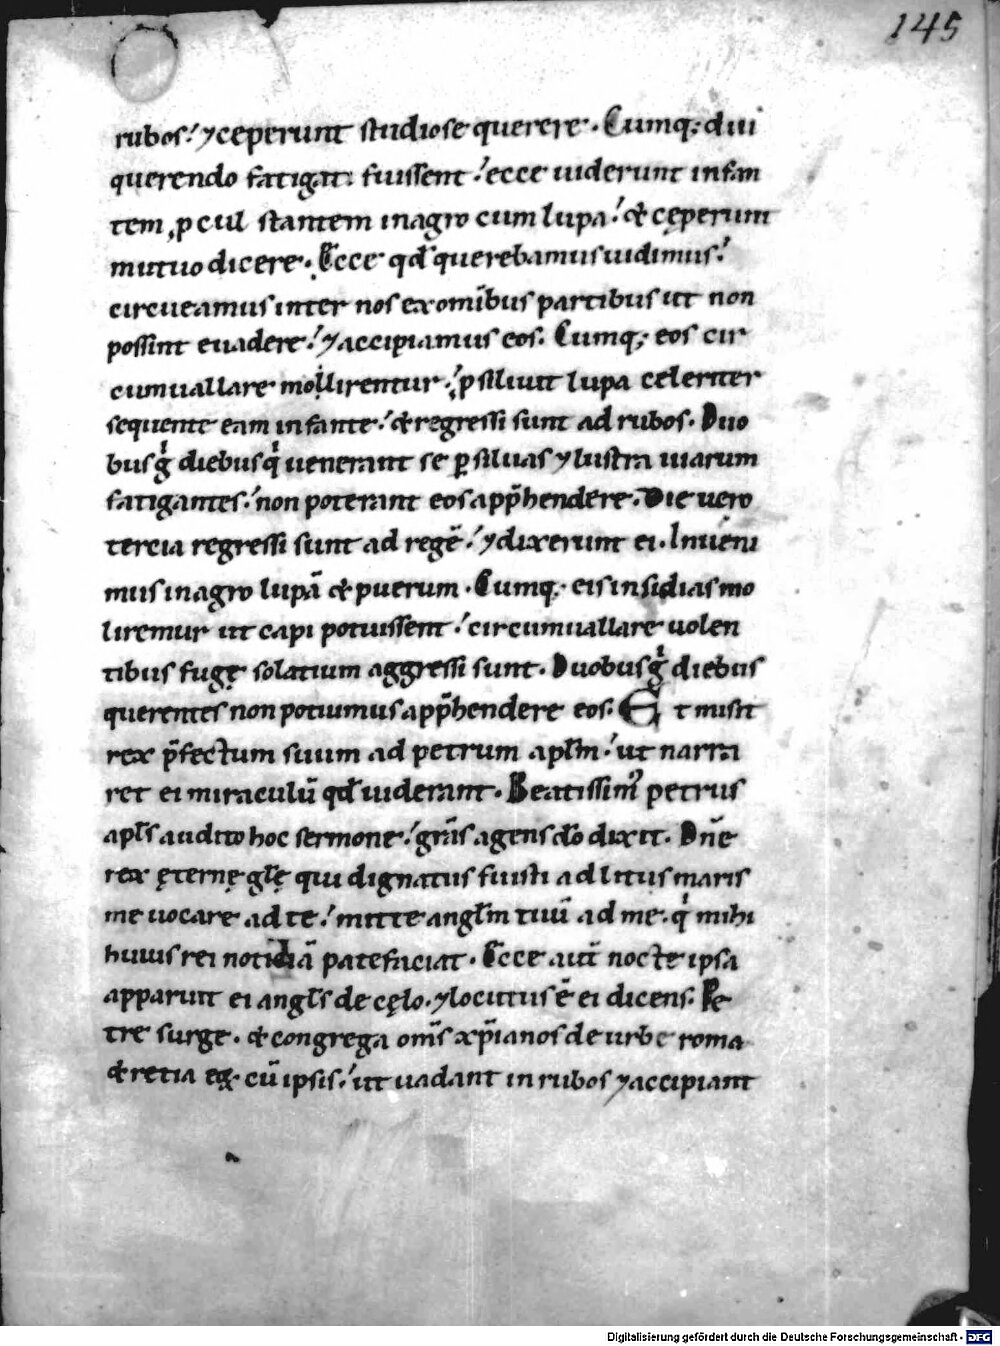 145
rubos! ⁊ceperunt studiose querere. Cumq; diu
querendo fatigati fuissent! ecce uiderunt infan
tem ꝓcul stantem inagro cum lupa! & cęperunt
mutuo dicere. Ecce qđ querebamus uidimus!
circueamus inter nos ex omībus partibus ut non
possint euadere! ⁊accipiamus eos. Cumq; eos cir
cumuallare mollirentur! ꝓsiliuit lupa celeriter
sequente eam infante! & regressi sunt ad rubos. Duo
bus gͥ diebus qͥ uenerant se ꝑ siluas ⁊ lustra uiarum
fatigantes! non poterant eos app̄hendere. Die uero
tercia regressi sunt ad regē! ⁊dixerunt ei. Inueni
mus inagro lupā & puerum. Cumq; eis insidias mo
liremur ut capi potuissent! circumuallare uolen
tibus fugę solatium aggressi sunt. Duobus gͥ diebus
querentes non potiumus app̄hendere eos. Et misit
rex p̄fectum suum ad petrum apłm! ut narra
ret ei miraculū qđ uiderant. Beatissimꝰ petrus
apłs audito hoc sermone! grās agens dō dixit. Dn̄e
rex ęternę głę qui dignatus fuisti ad litus maris
me uocare ad te! mitte angłm tuū ad me. qͥ mihi
huius rei noticiā patefaciat. Ecce aut̄ nocte ipsa
apparuit ei angłs de cęlo. ⁊locutus ē ei dicens. Pe
tre surge. & congrega om̄s xp̄ianos de urbe roma
& retia eoꝝ cū ipsis! ut uadant in rubos ⁊accipiant
Digitalisierung gefördert durch die Deutsche Forschungsgemeinschaft - DFG